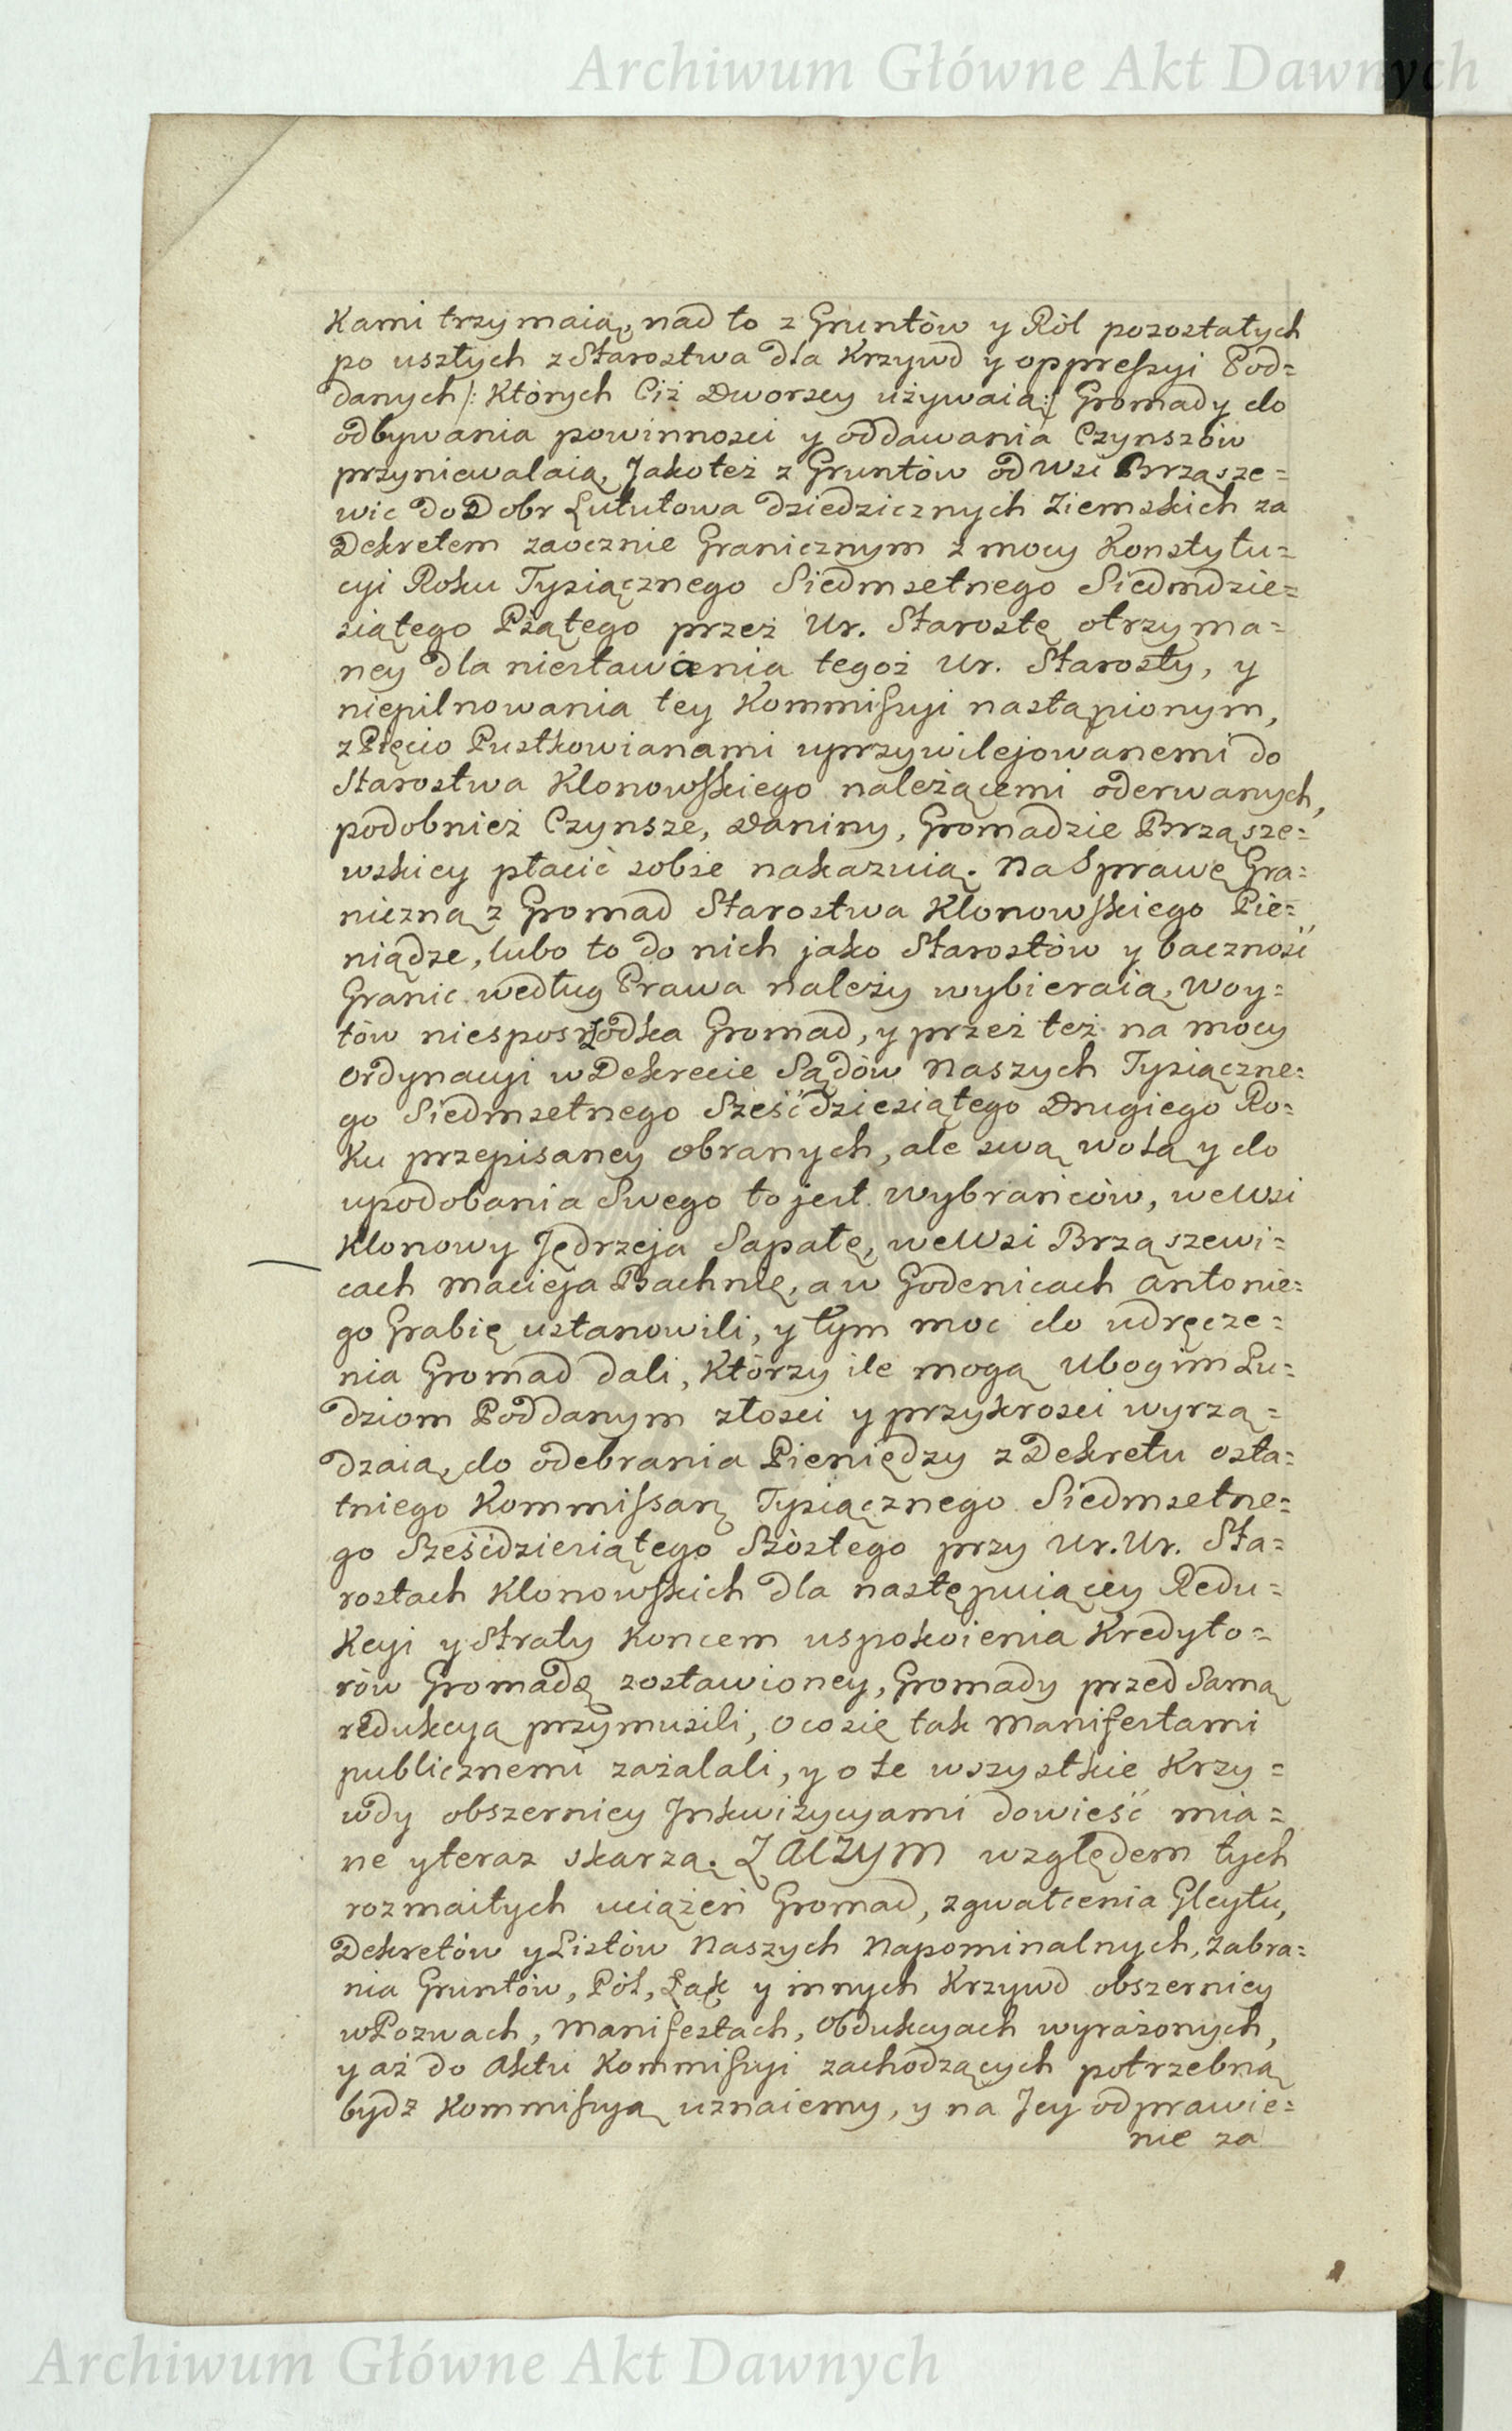 Archiwum Główne Akt Dawnych
Kami trzymaią, nad to z Gruntów y Ról pozostałych
po uszłych z Starostwa dla Krzywd y oppressyi Pod=
danych /: Których Ciż Dworscy używaią :/ Gromady do
odbywania powinnosci y oddawania Czynszów
przyniewalaią, Jako też z Gruntów od Wsi Brząsze=
wic do Dobr Lututowa dziedzicznych Ziemskich za
Dekretem zaocznie Granicznym z mocy Konstytu=
cyi Roku Tysiącznego Siedmsetnego Siedmdzie=
siątego Piątego przez Ur. Starostę otrzyma=
ney dla niestawienia tegoż Ur. Starosty, y
niepilnowania tey Kommissyi nastąpionym,
z Pięcio Pustkowianami uprzywilejowanemi do
Starostwa Klonowskiego należącemi oderwanych,
podobnież Czynsze, Daniny, Gromadzie Brząsze=
wskiey płacić sobie nakazuią. Na Sprawę Gra=
niczną z Gromad Starostwa Klonowskiego Pie=
niądze, lubo to do nich jako Starostów y baczność
Granic według Prawa należy wybieraią, Woy=
tów nie z posrzodka Gromad, y przez też na mocy
Ordynacyi w Dekrecie Sądów Naszych Tysiączne=
go Siedmsetnego Sześćdziesiątego Drugiego Ro=
ku przepisaney obranych, ale swą wolą y do
upodobania Swego to jest Wybrańców, we Wsi
Klonowy Jędrzeja Sapałę, we Wsi Brząszewi=
cach Macieja Bachnię, a w Godenicach Antonie=
go Grabię ustanowili, y tym moc do udręcze=
nia Gromad dali, Którzy ile mogą Ubogim Lu=
dziom Poddanym złosci y przykrosci wyrzą=
dzaią, do odebrania Pieniędzy z Dekretu osta=
tniego Kommissarz Tysiącznego Siedmsetne=
go Sześćdziesiątego Szóstego przy Ur. Ur. Sta=
rostach Klonowskich dla następuiącey Redu=
Kcyi y Straty Koncem uspokoienia Kredyto=
rów Gromadę zostawioney, Gromady przed Samą
redukcyą przymusili, o co się tak Manifestami
publicznemi zażalali, y o te wszystkie Krzy=
wdy obszerniey Jnkwizycyami dowieść mia=
ne y teraz skarzą. ZACZYM względem tych
rozmaitych uciążeń Gromad, zgwałcenia Gleytu,
Dekretów y Listów Naszych Napominalnych, Zabra=
nia Gruntów, Pól, Łąk y innych Krzywd obszerniey
w Pozwach, Manifestach, Obdukcyach wyrażonych,
y aż do Aktu Kommissyi zachodzących potrzebną
bydz Kommissyą uznaiemy, y na Jey odprawie=
nie za
Archiwum Główne Akt Dawnych